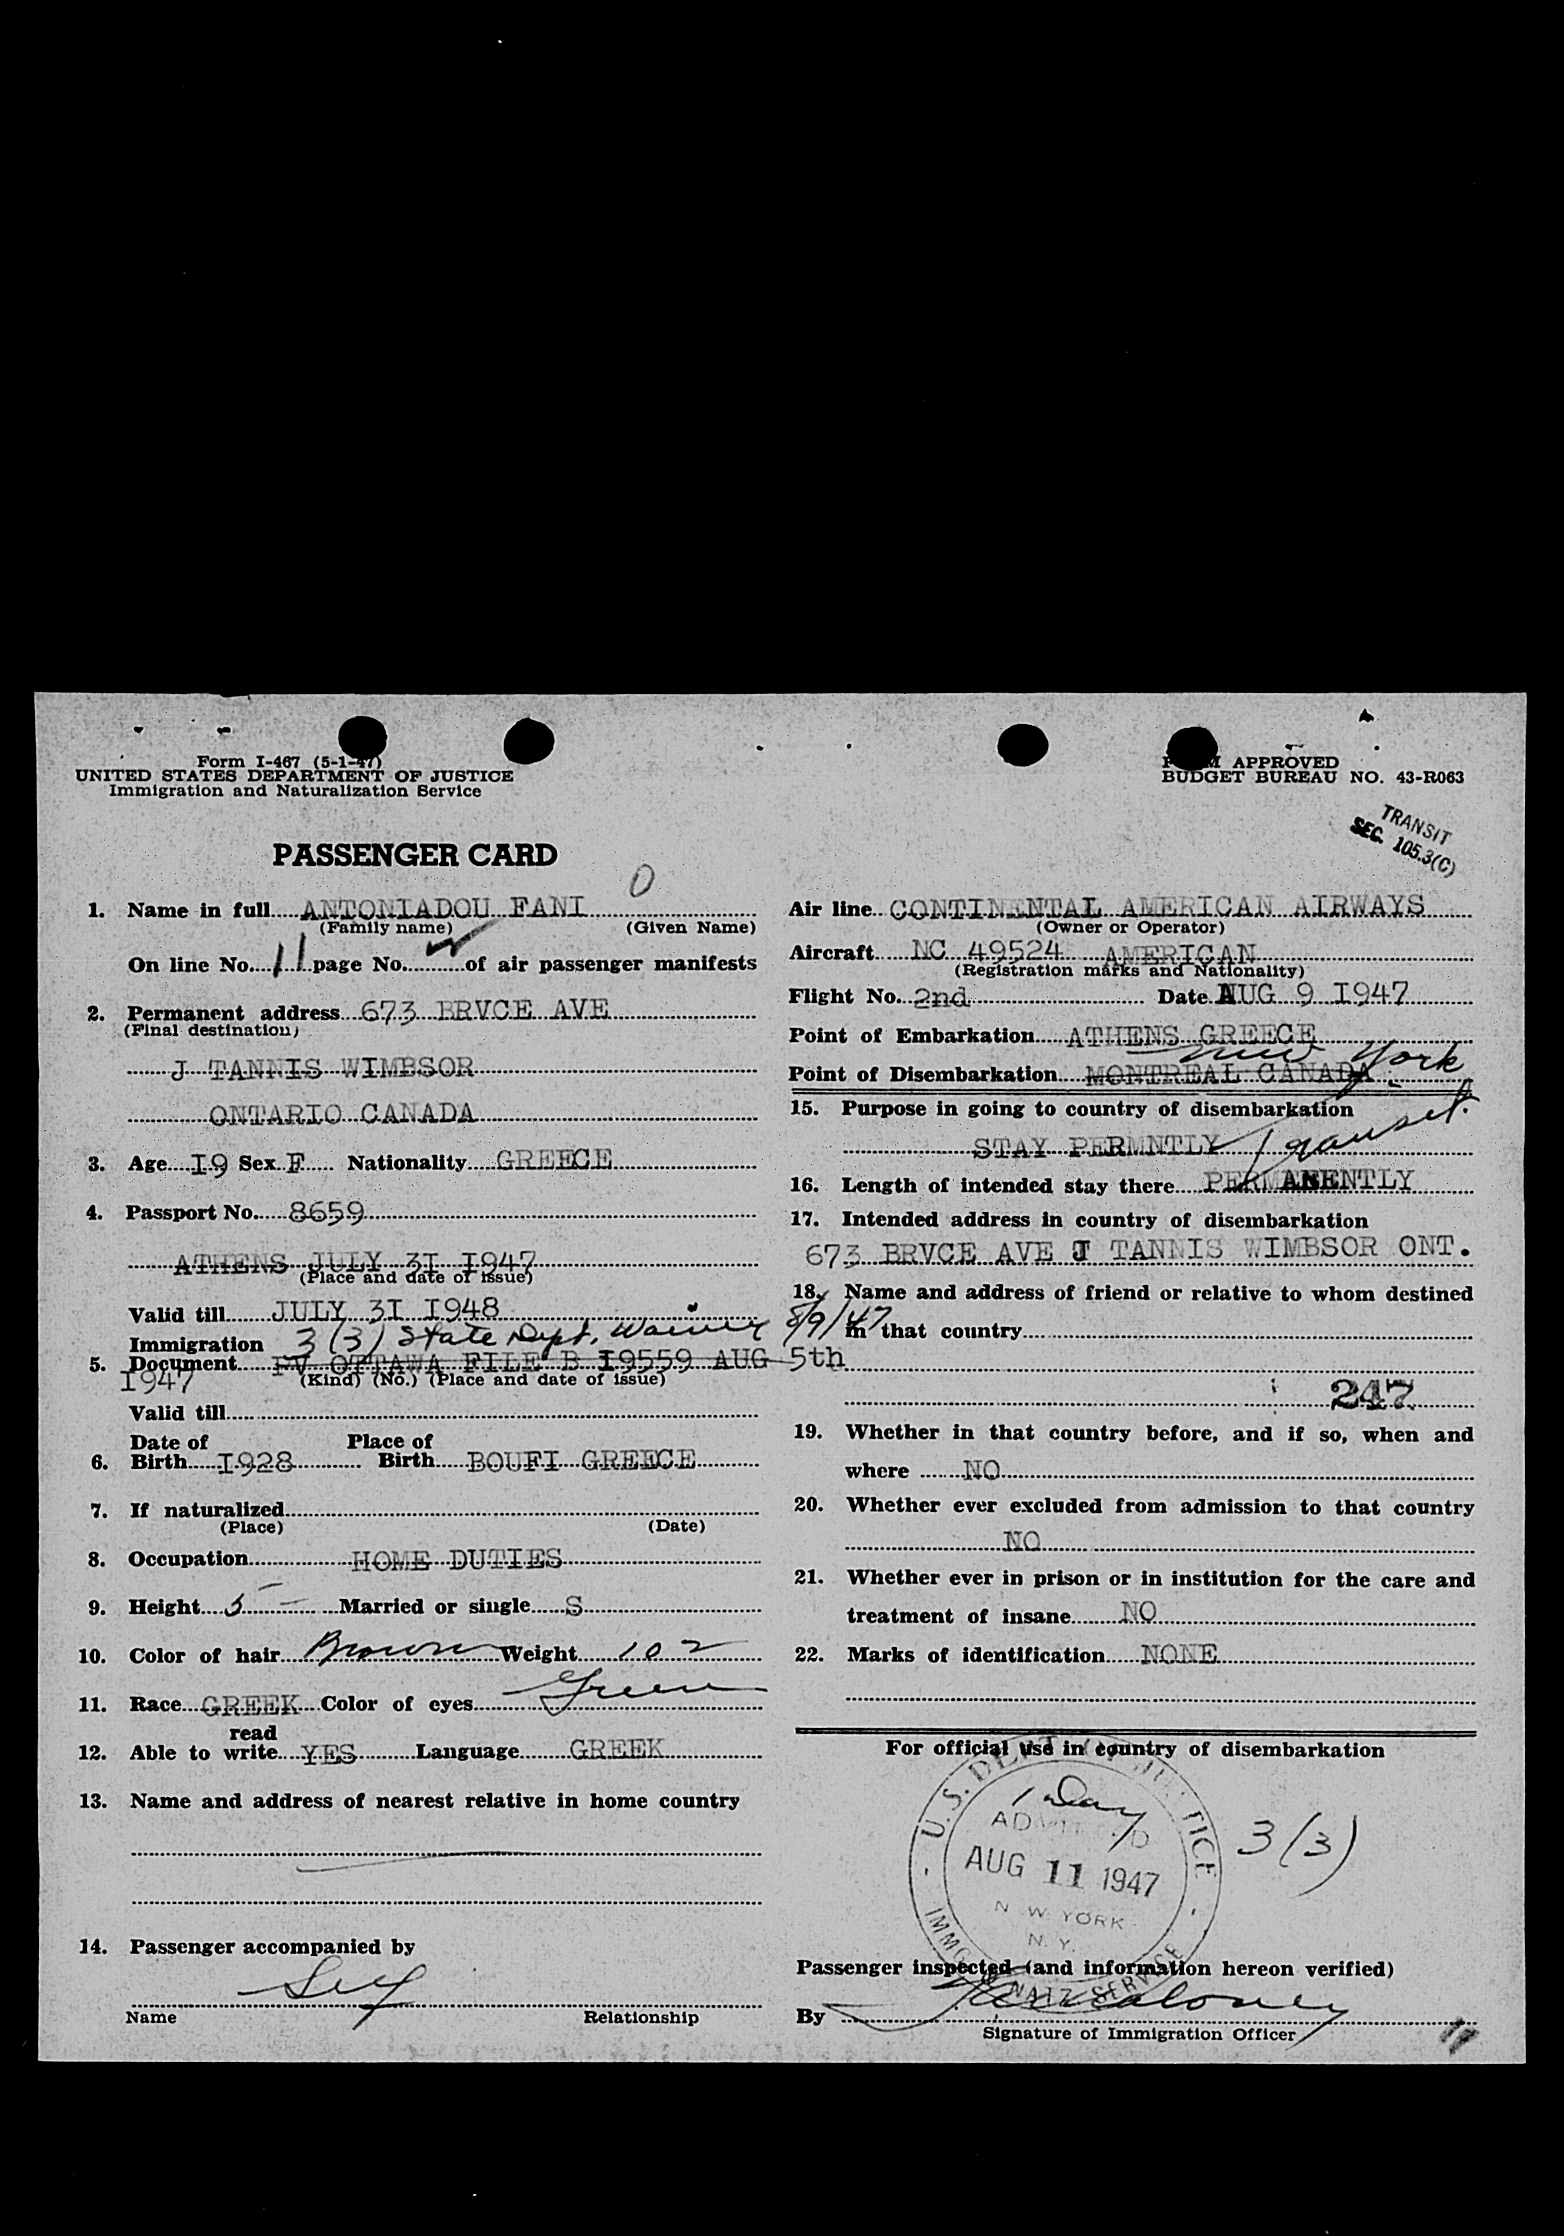 Form I-467 (5-1-47)
UNITED STATES DEPARTMENT OF JUSTICE
Immigration and Naturalization Service
APPROVED
BUDGET BUREAU NO. 43-R063
TRANSIT
SEC. 105.3(C)
PASSENGER CARD
0
1. Name in full ANTONIADOU FANI
(Family name) (Given Name)
On line No. 11 page No. of air passenger manifests
2. Permanent address 673 BRVCE AVE
(Final destination)
J TANNIS WIMBSOR
ONTARIO CANADA
3. Age I9 Sex F Nationality GREECE
4. Passport No. 8659
ATHENS JULY 3I I947
(Place and date of issue)
Valid till JULY 3I I948
Immigration 3(3) State Dept. Waiver 8/9/47
5. Document PV OTTAWA FILE B I9559 AUG 5th
I947 (Kind) (No.) (Place and date of issue)
Valid till
Date of Place of
6. Birth I928 Birth BOUFI GREECE
7. If naturalized
(Place) (Date)
8. Occupation HOME DUTIES
9. Height 5 - Married or single S
10. Color of hair Brown Weight 102
11. Race GREEK Color of eyes Green
read
12. Able to write YES Language GREEK
13. Name and address of nearest relative in home country
14. Passenger accompanied by
Self
Name Relationship
Air line CONTINENTAL AMERICAN AIRWAYS
(Owner or Operator)
Aircraft NC 49524 AMERICAN
(Registration marks and Nationality)
Flight No. 2nd Date AUG 9 I947
Point of Embarkation ATHENS GREECE
New York
Point of Disembarkation MONTREAL CANADA
15. Purpose in going to country of disembarkation
STAY PERMNTLY Transit.
16. Length of intended stay there PERMANENTLY
17. Intended address in country of disembarkation
673 BRVCE AVE J TANNIS WIMBSOR ONT.
18. Name and address of friend or relative to whom destined
in that country
247
19. Whether in that country before, and if so, when and
where NO
20. Whether ever excluded from admission to that country
NO
21. Whether ever in prison or in institution for the care and
treatment of insane NO
22. Marks of identification NONE
For official use in country of disembarkation
1 Day
ADMITTED
AUG 11 1947
NEW YORK
N. Y.
3(3)
Passenger inspected (and information hereon verified)
By
Signature of Immigration Officer